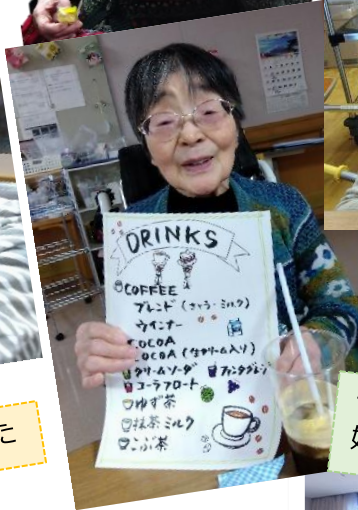 DRINKS
COFFEE
ブレンド(さとう・ミルク)
ウインナー
COCOA
COCOA(生クリーム入り)
クリームソーダ ファンタグレープ
コーラフロート
ゆず茶
抹茶ミルク
こぶ茶
た